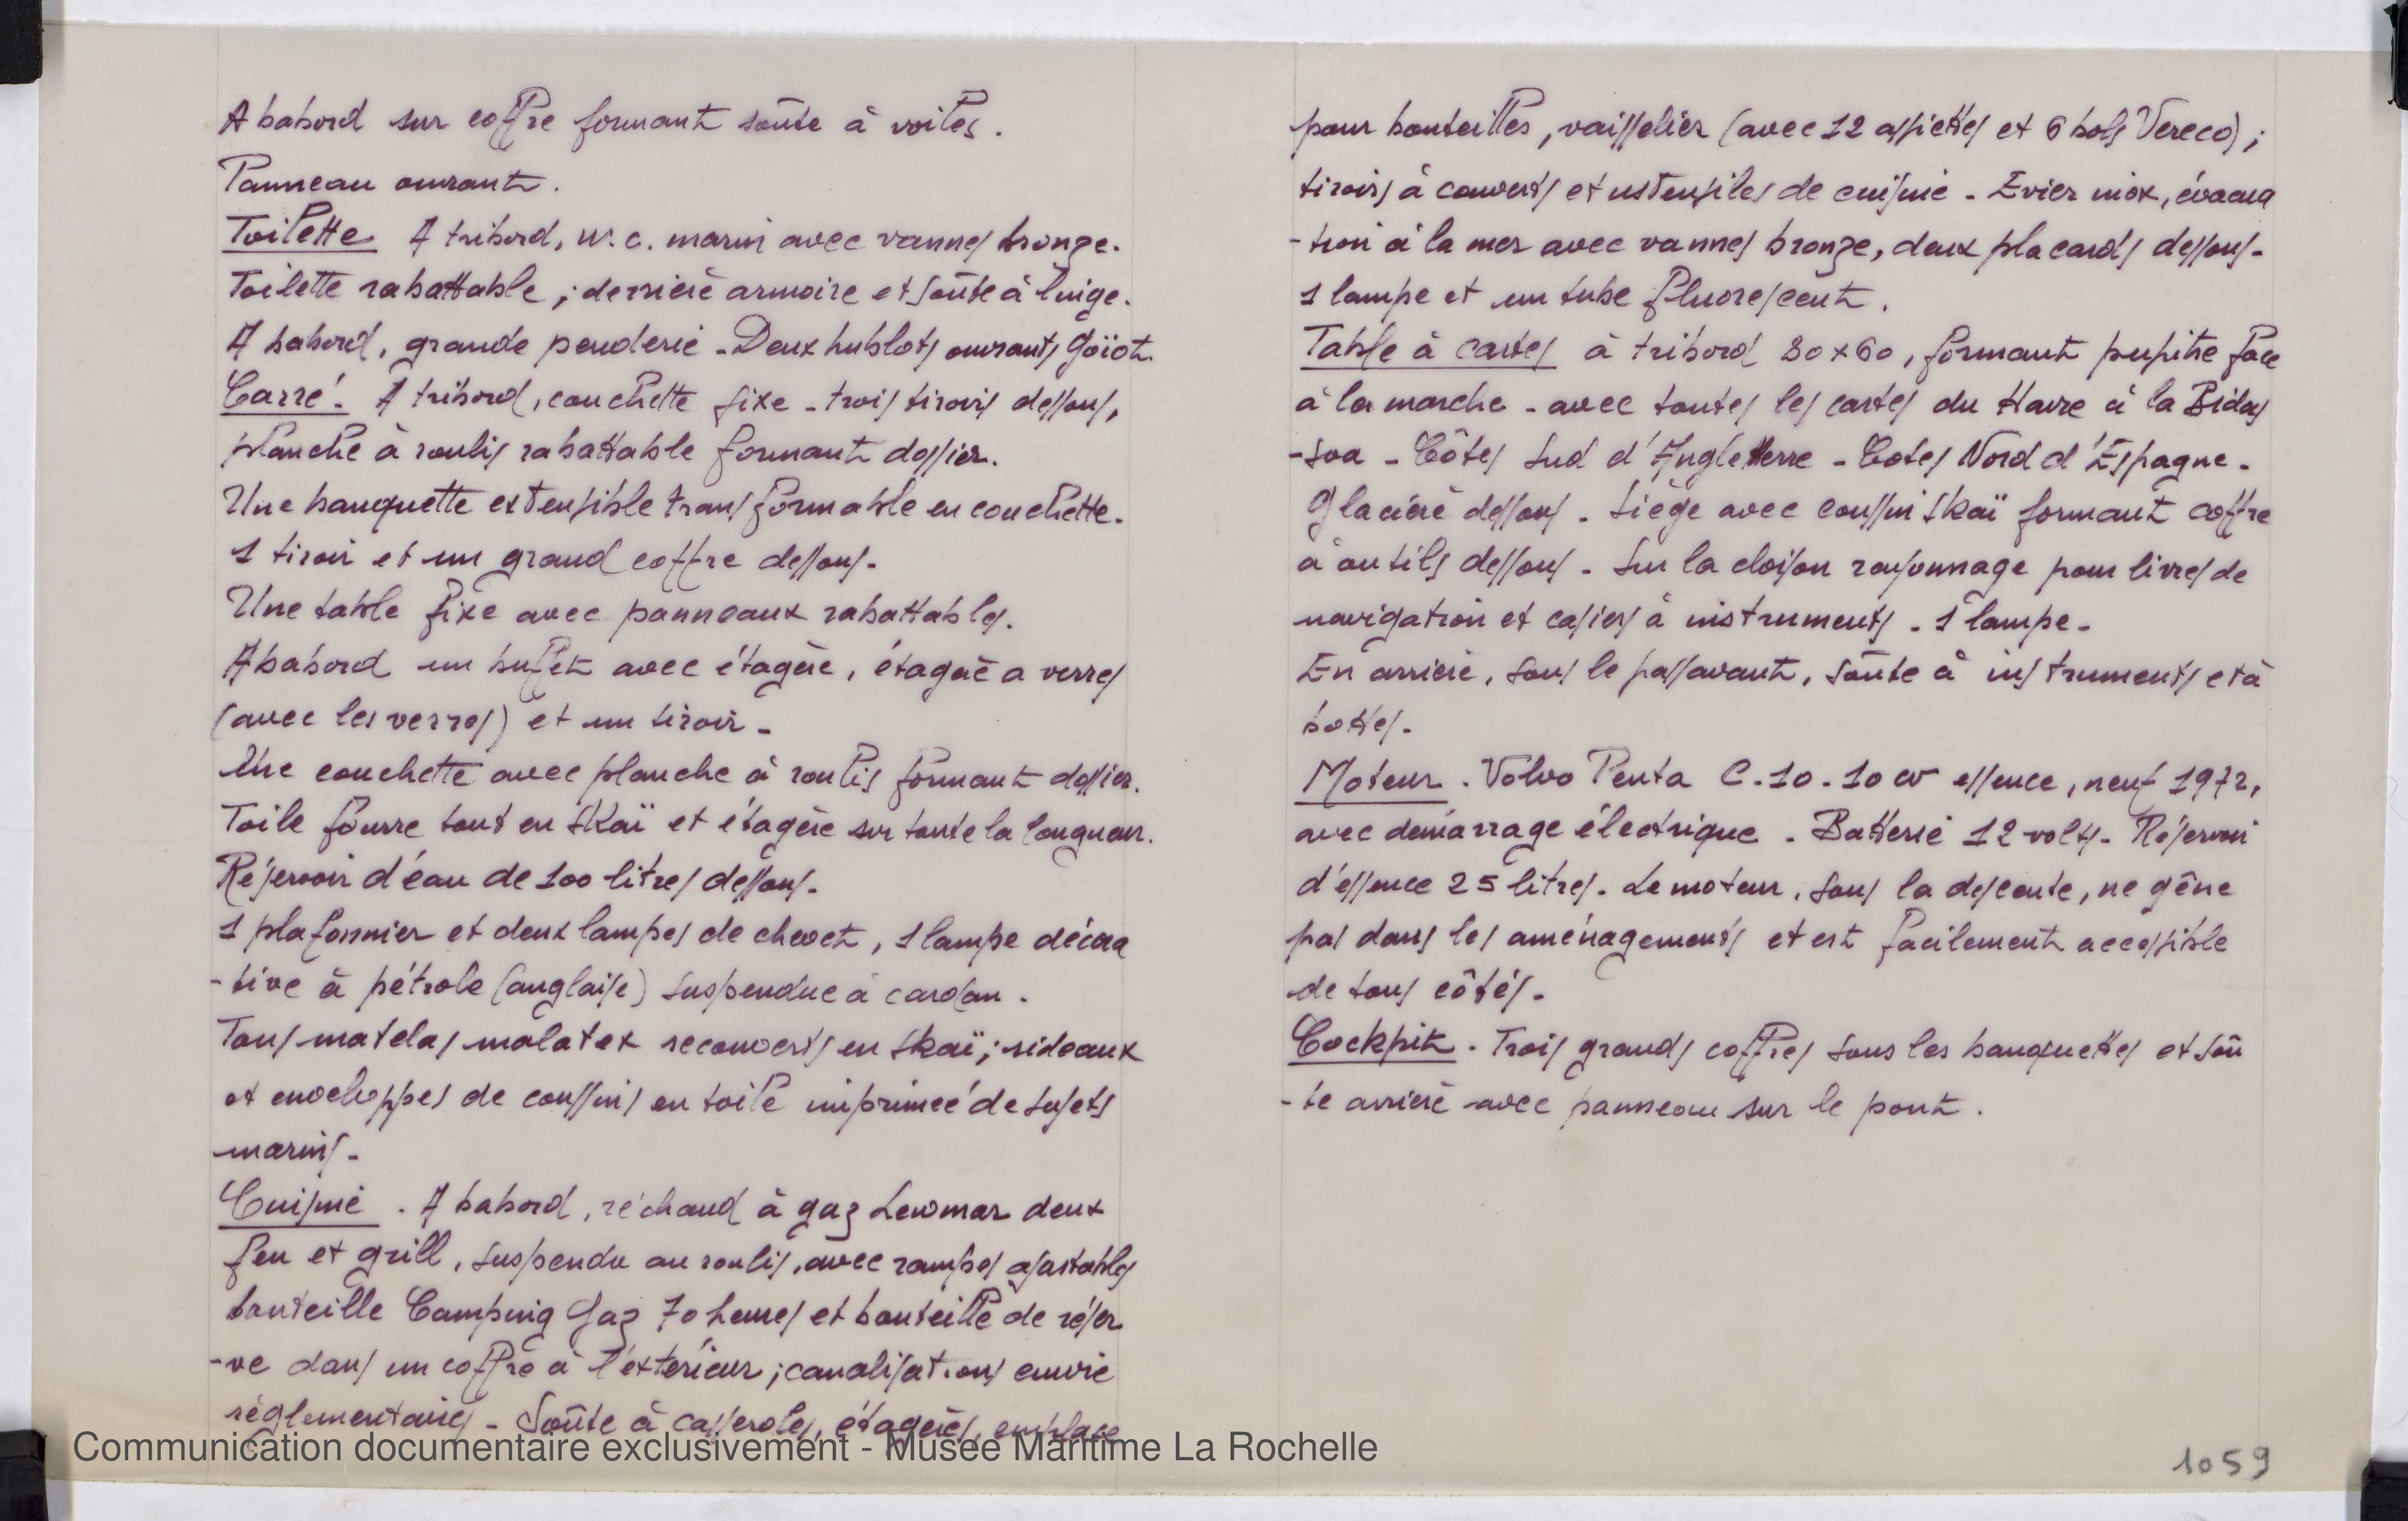 A babord sur coffre formant soûte à voiles.
Panneau ouvrant.
Toilette A tribord, w.c. marin avec vannes bronze.
Toilette rabattable ; derrière armoire et soûte à linge.
A babord, grande penderie - Deux hublots ouvrants Goïot.
Carré. A tribord, couchette fixe - trois tiroirs dessous,
planche à roulis rabattable formant dossier.
Une banquette extensible transformable en couchette.
1 tiroir et un grand coffre dessous.
Une table fixe avec panneaux rabattables.
A babord un buffet avec étagère, étagère a verres
(avec les verres) et un tiroir -
Une couchette avec planche à roulis formant dossier.
Toile fourre tout en Skaï et étagère sur toute la longueur.
Réservoir d'éau de 100 litres dessous.
1 plafonnier et deux lampes de chevet, 1 lampe décora
-tive à pétrole (anglaise) suspendue à cardan.
Tous matelas molatex recouverts en Skaï ; rideaux
et enveloppes de coussins en toile imprimée de sujets
marins -
Cuisine. A babord, réchaud à gaz Lewmar deux
feu et grill, suspendu au roulis, avec rampes ajustables
bouteille Camping Gaz 70 heures et bouteille de réser
-ve dans un coffre à l'extérieur ; canalisations cuivre
réglementaires - Soûte à casseroles, étagères, emplace
pour bouteilles, vaisselier (avec 12 assiettes et 6 bols Vereco) ;
tiroirs à couverts et ustensiles de cuisine - Evier inox, évacua
-tion à la mer avec vannes bronze, deux placards dessous -
1 lampe et un tube fluorescent.
Table à cartes à tribord 80 x 60, formant pupitre face
à la marche - avec toutes les cartes du Havre à la Bidas
-soa - Côtes Sud d'Angleterre - Cotes Nord d'Espagne -
Glacière dessous - Siège avec coussin Skaï formant coffre
à outils dessous - Sur la cloison rayonnage pour livres de
navigation et casiers à instruments - 1 lampe -
En arrière, sous le passavant, soûte à instruments et à
bottes -
Moteur. Volvo Penta C.10 - 10 cv essence, neuf 1972,
avec démarrage électrique - Batterie 12 volts - Réservoir
d'essence 25 litres. Le moteur, sous la descente, ne gêne
pas dans les aménagements et est facilement accessible
de tous côtés -
Cockpit. Trois grands coffres sous les banquettes et soû
-te arrière avec panneau sur le pont.
Communication documentaire exclusivement - Musée Maritime La Rochelle
1059